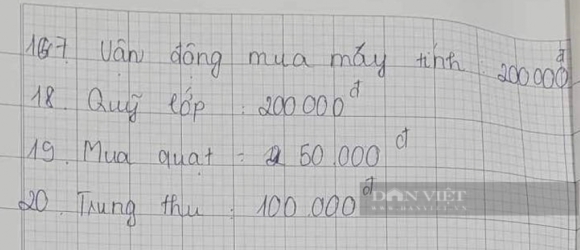 167 Vận động mua máy tính : 200 000đ
18. Quỹ lớp : 200 000đ
19. Mua quạt = 50.000đ
20. Trung thu : 100 000đ
DÂN VIỆT